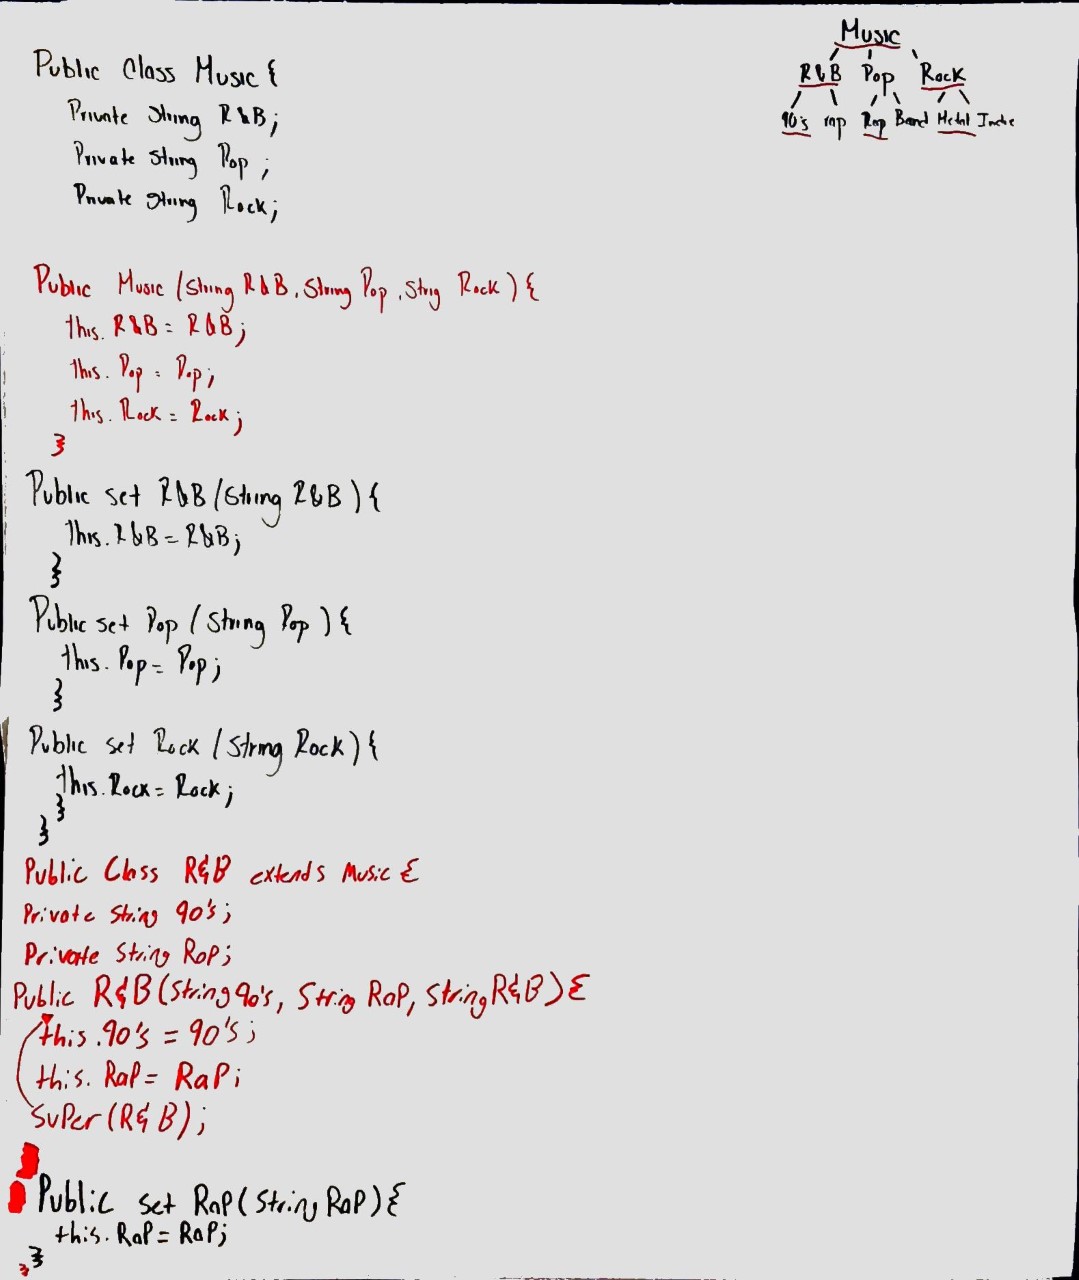 Music
R&B Pop Rock
90's rap Rap Band Metal Indie
Public Class Music {
Private String R&B;
Private String Pop ;
Private String Rock;
Public Music (String R&B, String Pop, Strig Rock) {
this. R&B = R&B;
this. Pop = Pop;
this. Rock = Rock;
}
Public set R&B (String R&B) {
this. R&B = R&B;
}
Public set Pop (String Pop) {
this. Pop = Pop;
}
Public set Rock (String Rock) {
this. Rock = Rock;
}
}
Public Class R&B extends Music {
Private String 90's;
Private String Rap;
Public R&B (String 90's, String Rap, String R&B) {
this. 90's = 90's;
this. Rap = Rap;
Super (R&B);
Public set Rap (String Rap) {
this. Rap = Rap;
}
}